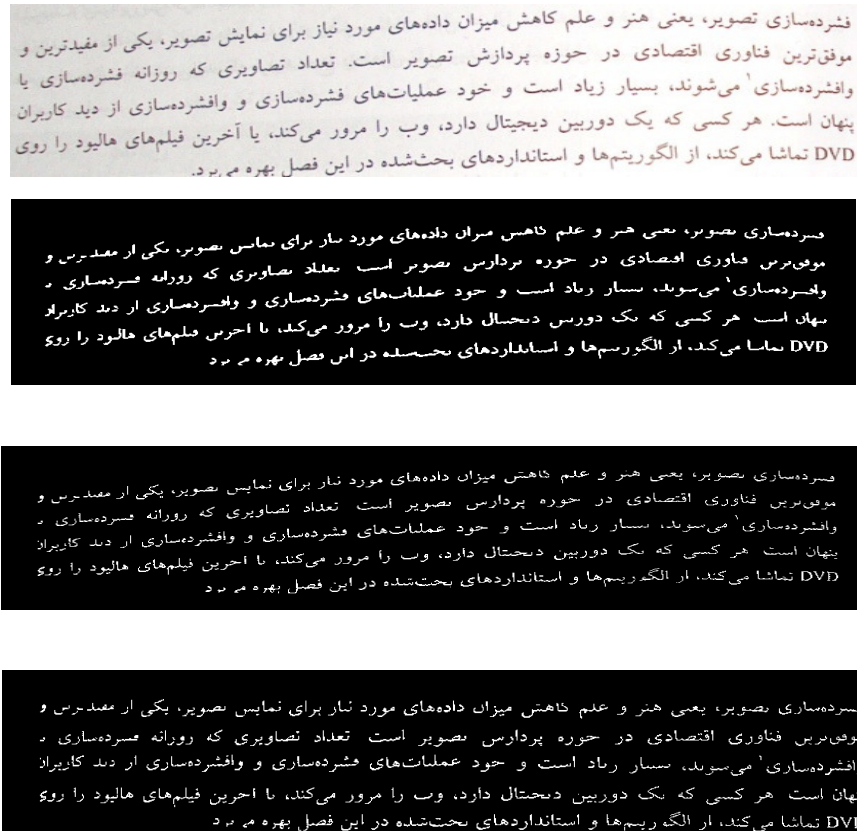 فشرده‌سازی تصویر، یعنی هنر و علم کاهش میزان داده‌های مورد نیاز برای نمایش تصویر، یکی از مفیدترین و
موفق‌ترین فناوری اقتصادی در حوزه پردازش تصویر است. تعداد تصاویری که روزانه فشرده‌سازی یا
وافشرده‌سازی۱ می‌شوند، بسیار زیاد است و خود عملیات‌های فشرده‌سازی و وافشرده‌سازی از دید کاربران
پنهان است. هر کسی که یک دوربین دیجیتال دارد، وب را مرور می‌کند، یا آخرین فیلم‌های هالیود را روی
DVD تماشا می‌کند، از الگوریتم‌ها و استانداردهای بحث‌شده در این فصل بهره می‌برد.
فشرده‌سازی تصویر، یعنی هنر و علم کاهش میزان داده‌های مورد نیاز برای نمایش تصویر، یکی از مفیدترین و
موفق‌ترین فناوری اقتصادی در حوزه پردازش تصویر است تعداد تصاویری که روزانه فشرده‌سازی
وافشرده‌سازی۱ می‌شوند، بسیار زیاد است و خود عملیات‌های فشرده‌سازی و وافشرده‌سازی از دید کاربران
پنهان است هر کسی که یک دوربین دیجیتال دارد، وب را مرور می‌کند، یا آخرین فیلم‌های هالیود را روی
DVD تماشا می‌کند، از الگوریتم‌ها و استانداردهای بحث‌شده در این فصل بهره می‌برد
فشرده‌سازی تصویر، یعنی هنر و علم کاهش میزان داده‌های مورد نیاز برای نمایش تصویر، یکی از مفیدترین و
موفق‌ترین فناوری اقتصادی در حوزه پردازش تصویر است تعداد تصاویری که روزانه فشرده‌سازی
وافشرده‌سازی۱ می‌شوند، بسیار زیاد است و خود عملیات‌های فشرده‌سازی و وافشرده‌سازی از دید کاربران
پنهان است هر کسی که یک دوربین دیجیتال دارد، وب را مرور می‌کند، یا آخرین فیلم‌های هالیود را روی
DVD تماشا می‌کند، از الگوریتم‌ها و استانداردهای بحث‌شده در این فصل بهره می‌برد
شرده‌سازی تصویر، یعنی هنر و علم کاهش میزان داده‌های مورد نیاز برای نمایش تصویر، یکی از مفیدترین و
وفق‌ترین فناوری اقتصادی در حوزه پردازش تصویر است تعداد تصاویری که روزانه فشرده‌سازی
افشرده‌سازی۱ می‌شوند، بسیار زیاد است و خود عملیات‌های فشرده‌سازی و وافشرده‌سازی از دید کاربران
هان است هر کسی که یک دوربین دیجیتال دارد، وب را مرور می‌کند، یا آخرین فیلم‌های هالیود را روی
DVD تماشا می‌کند، از الگوریتم‌ها و استانداردهای بحث‌شده در این فصل بهره می‌برد